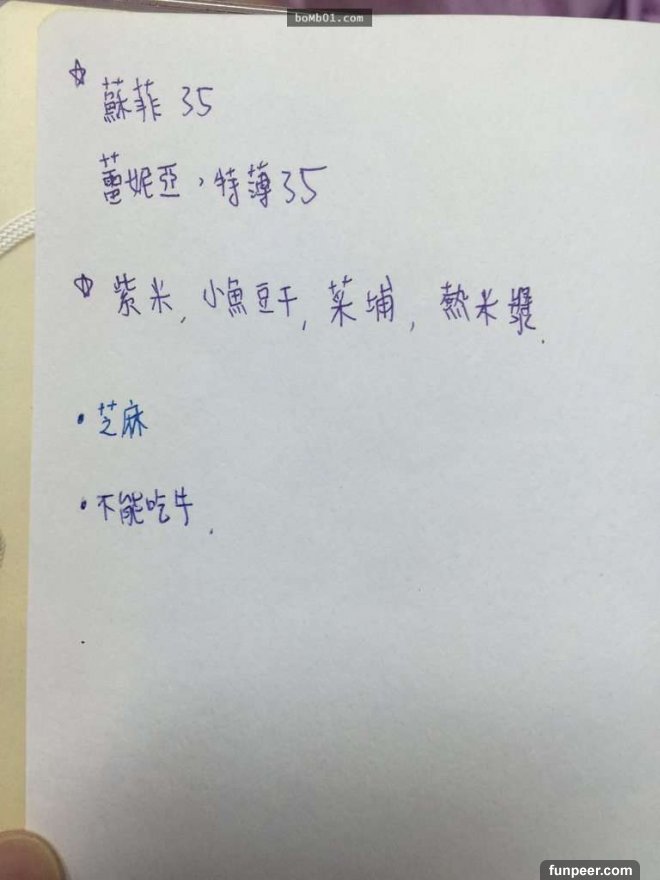 boMb01.com
☆ 蘇菲 35
蕾妮亞，特薄35
☆ 紫米, 小魚豆干, 菜埔, 熱米漿.
• 芝麻
• 不能吃牛.
funpeer.com